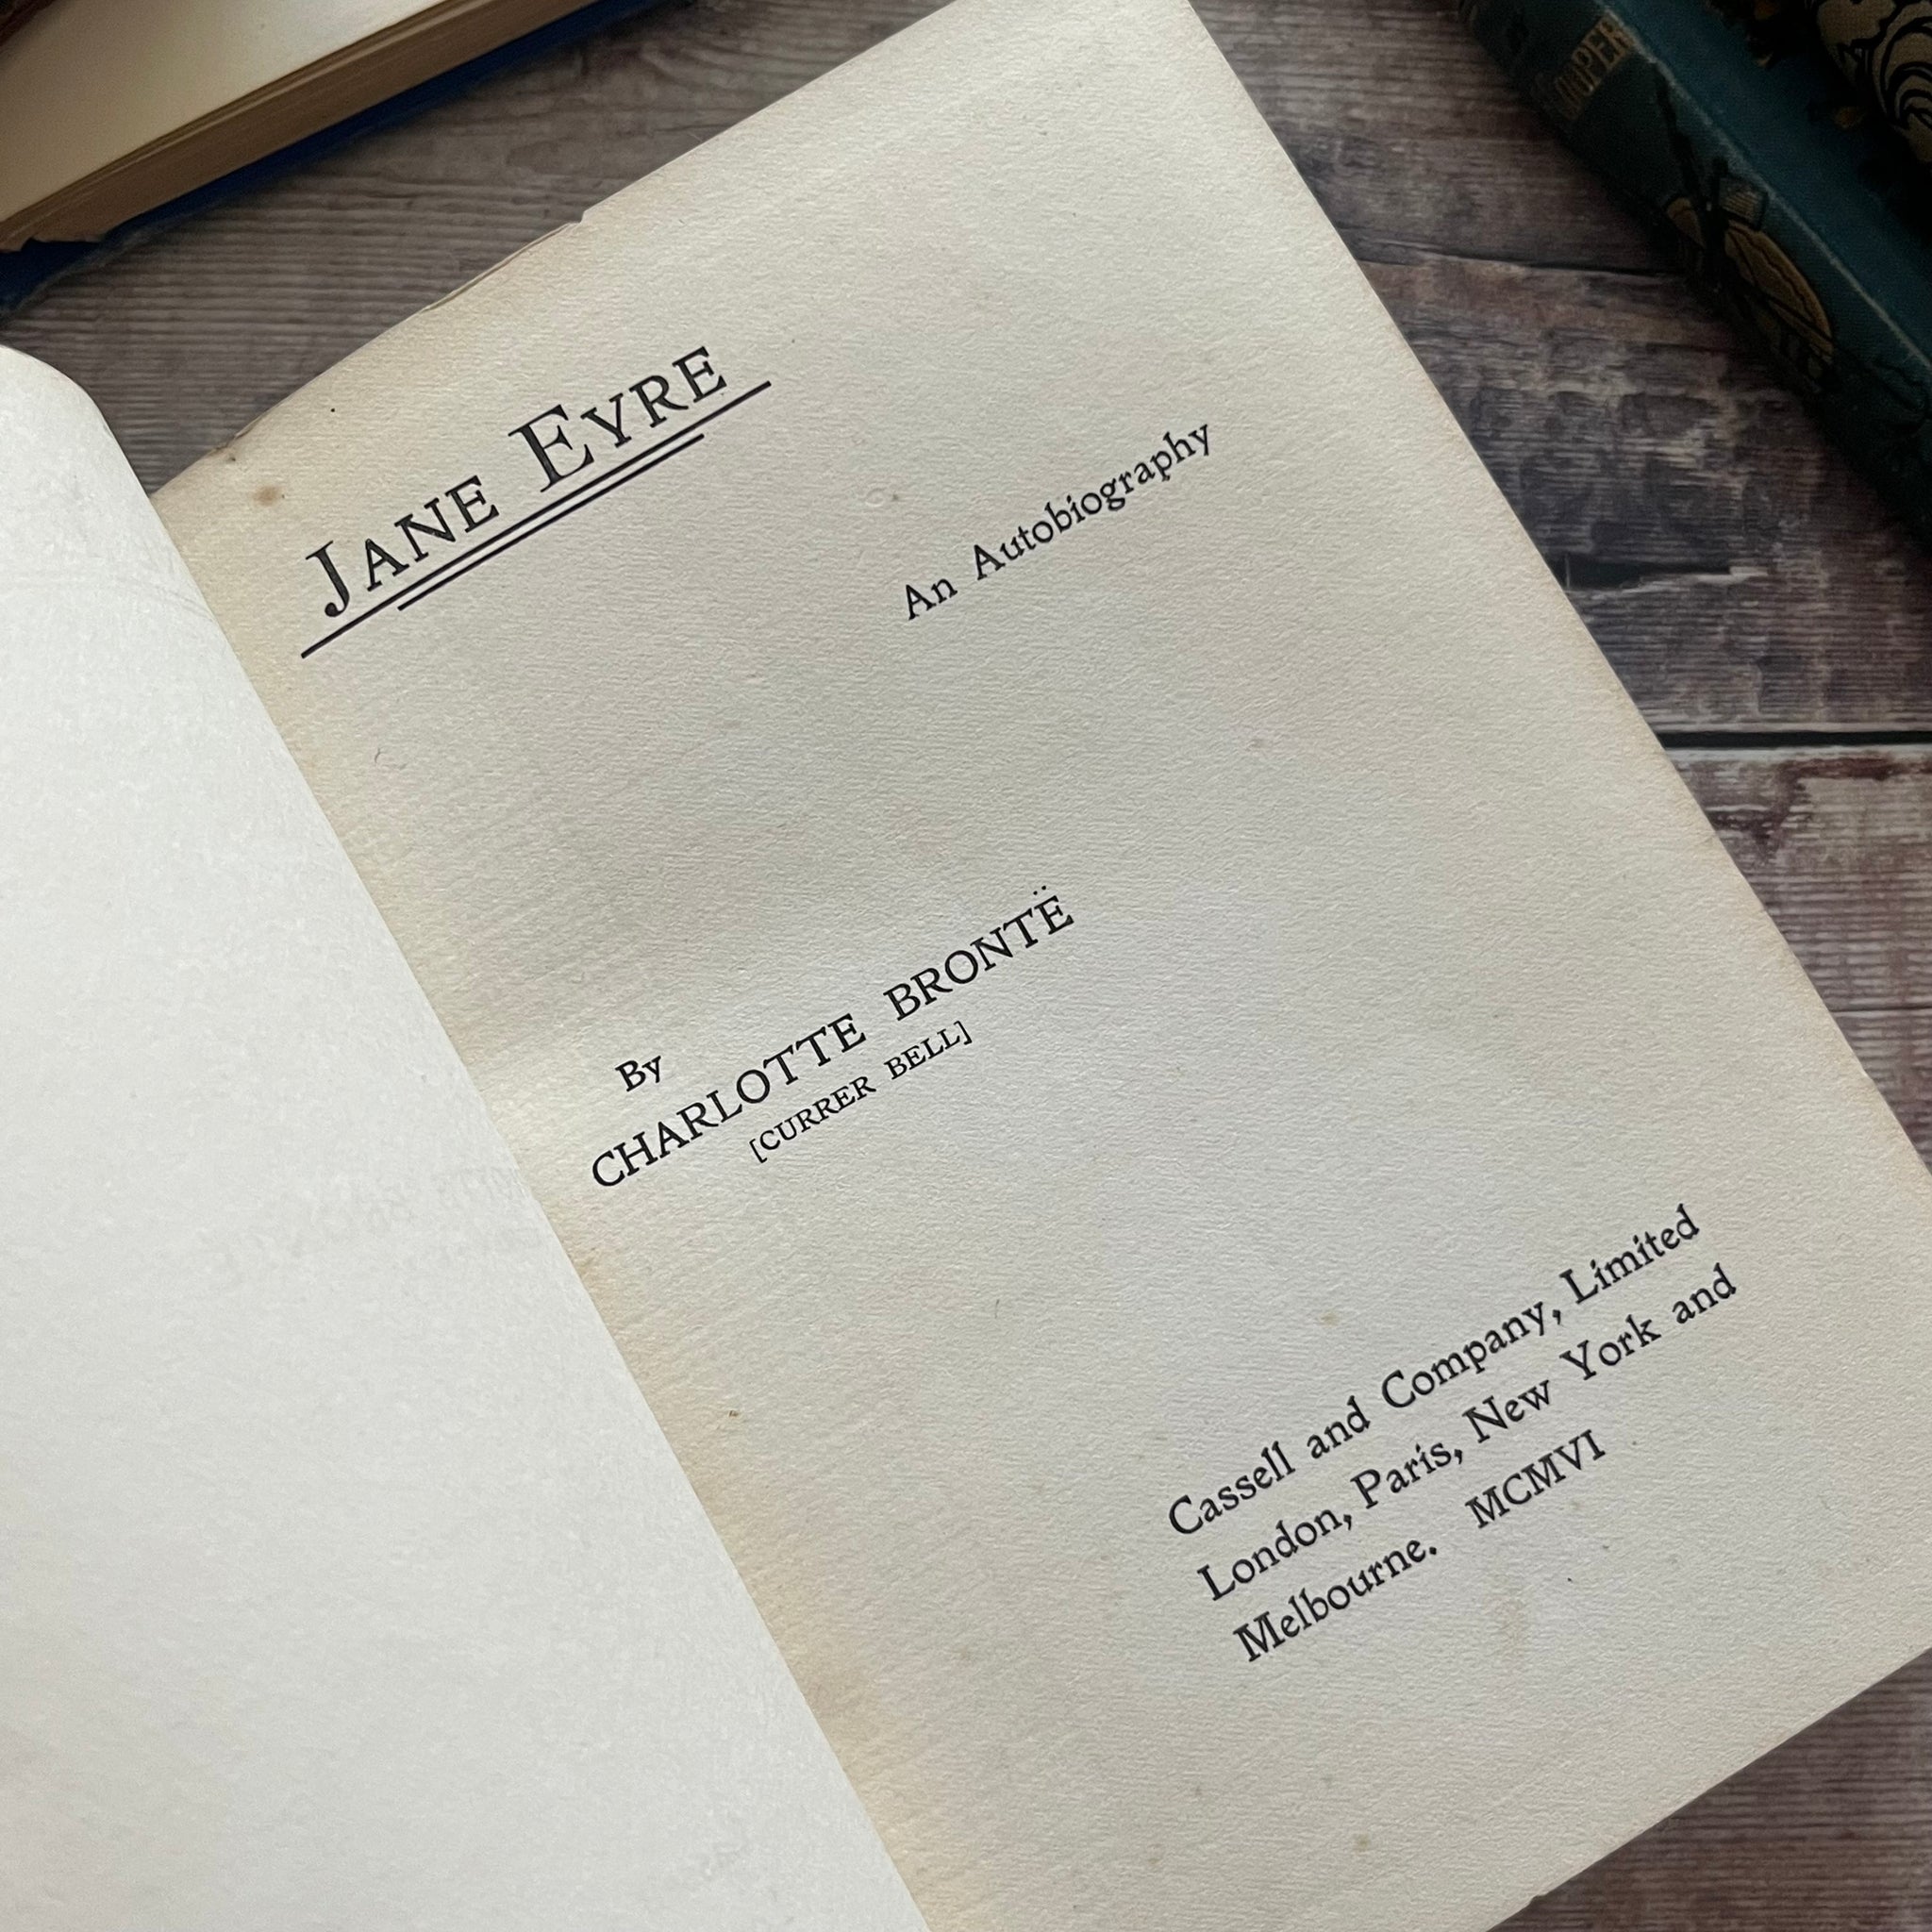 JANE EYRE
An Autobiography
By
CHARLOTTE BRONTË
[CURRER BELL]
Cassell and Company, Limited
London, Paris, New York and
Melbourne. MCMVI